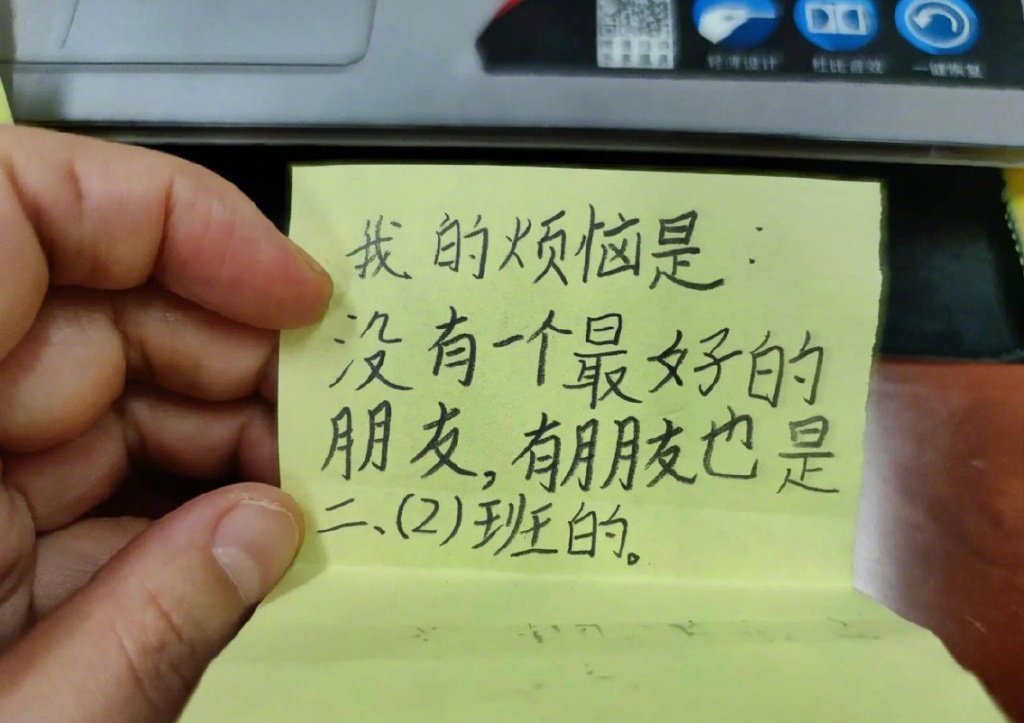 杜比音效
一键恢复
我的烦恼是:
没有一个最好的
朋友,有朋友也是
二、(2)班的。